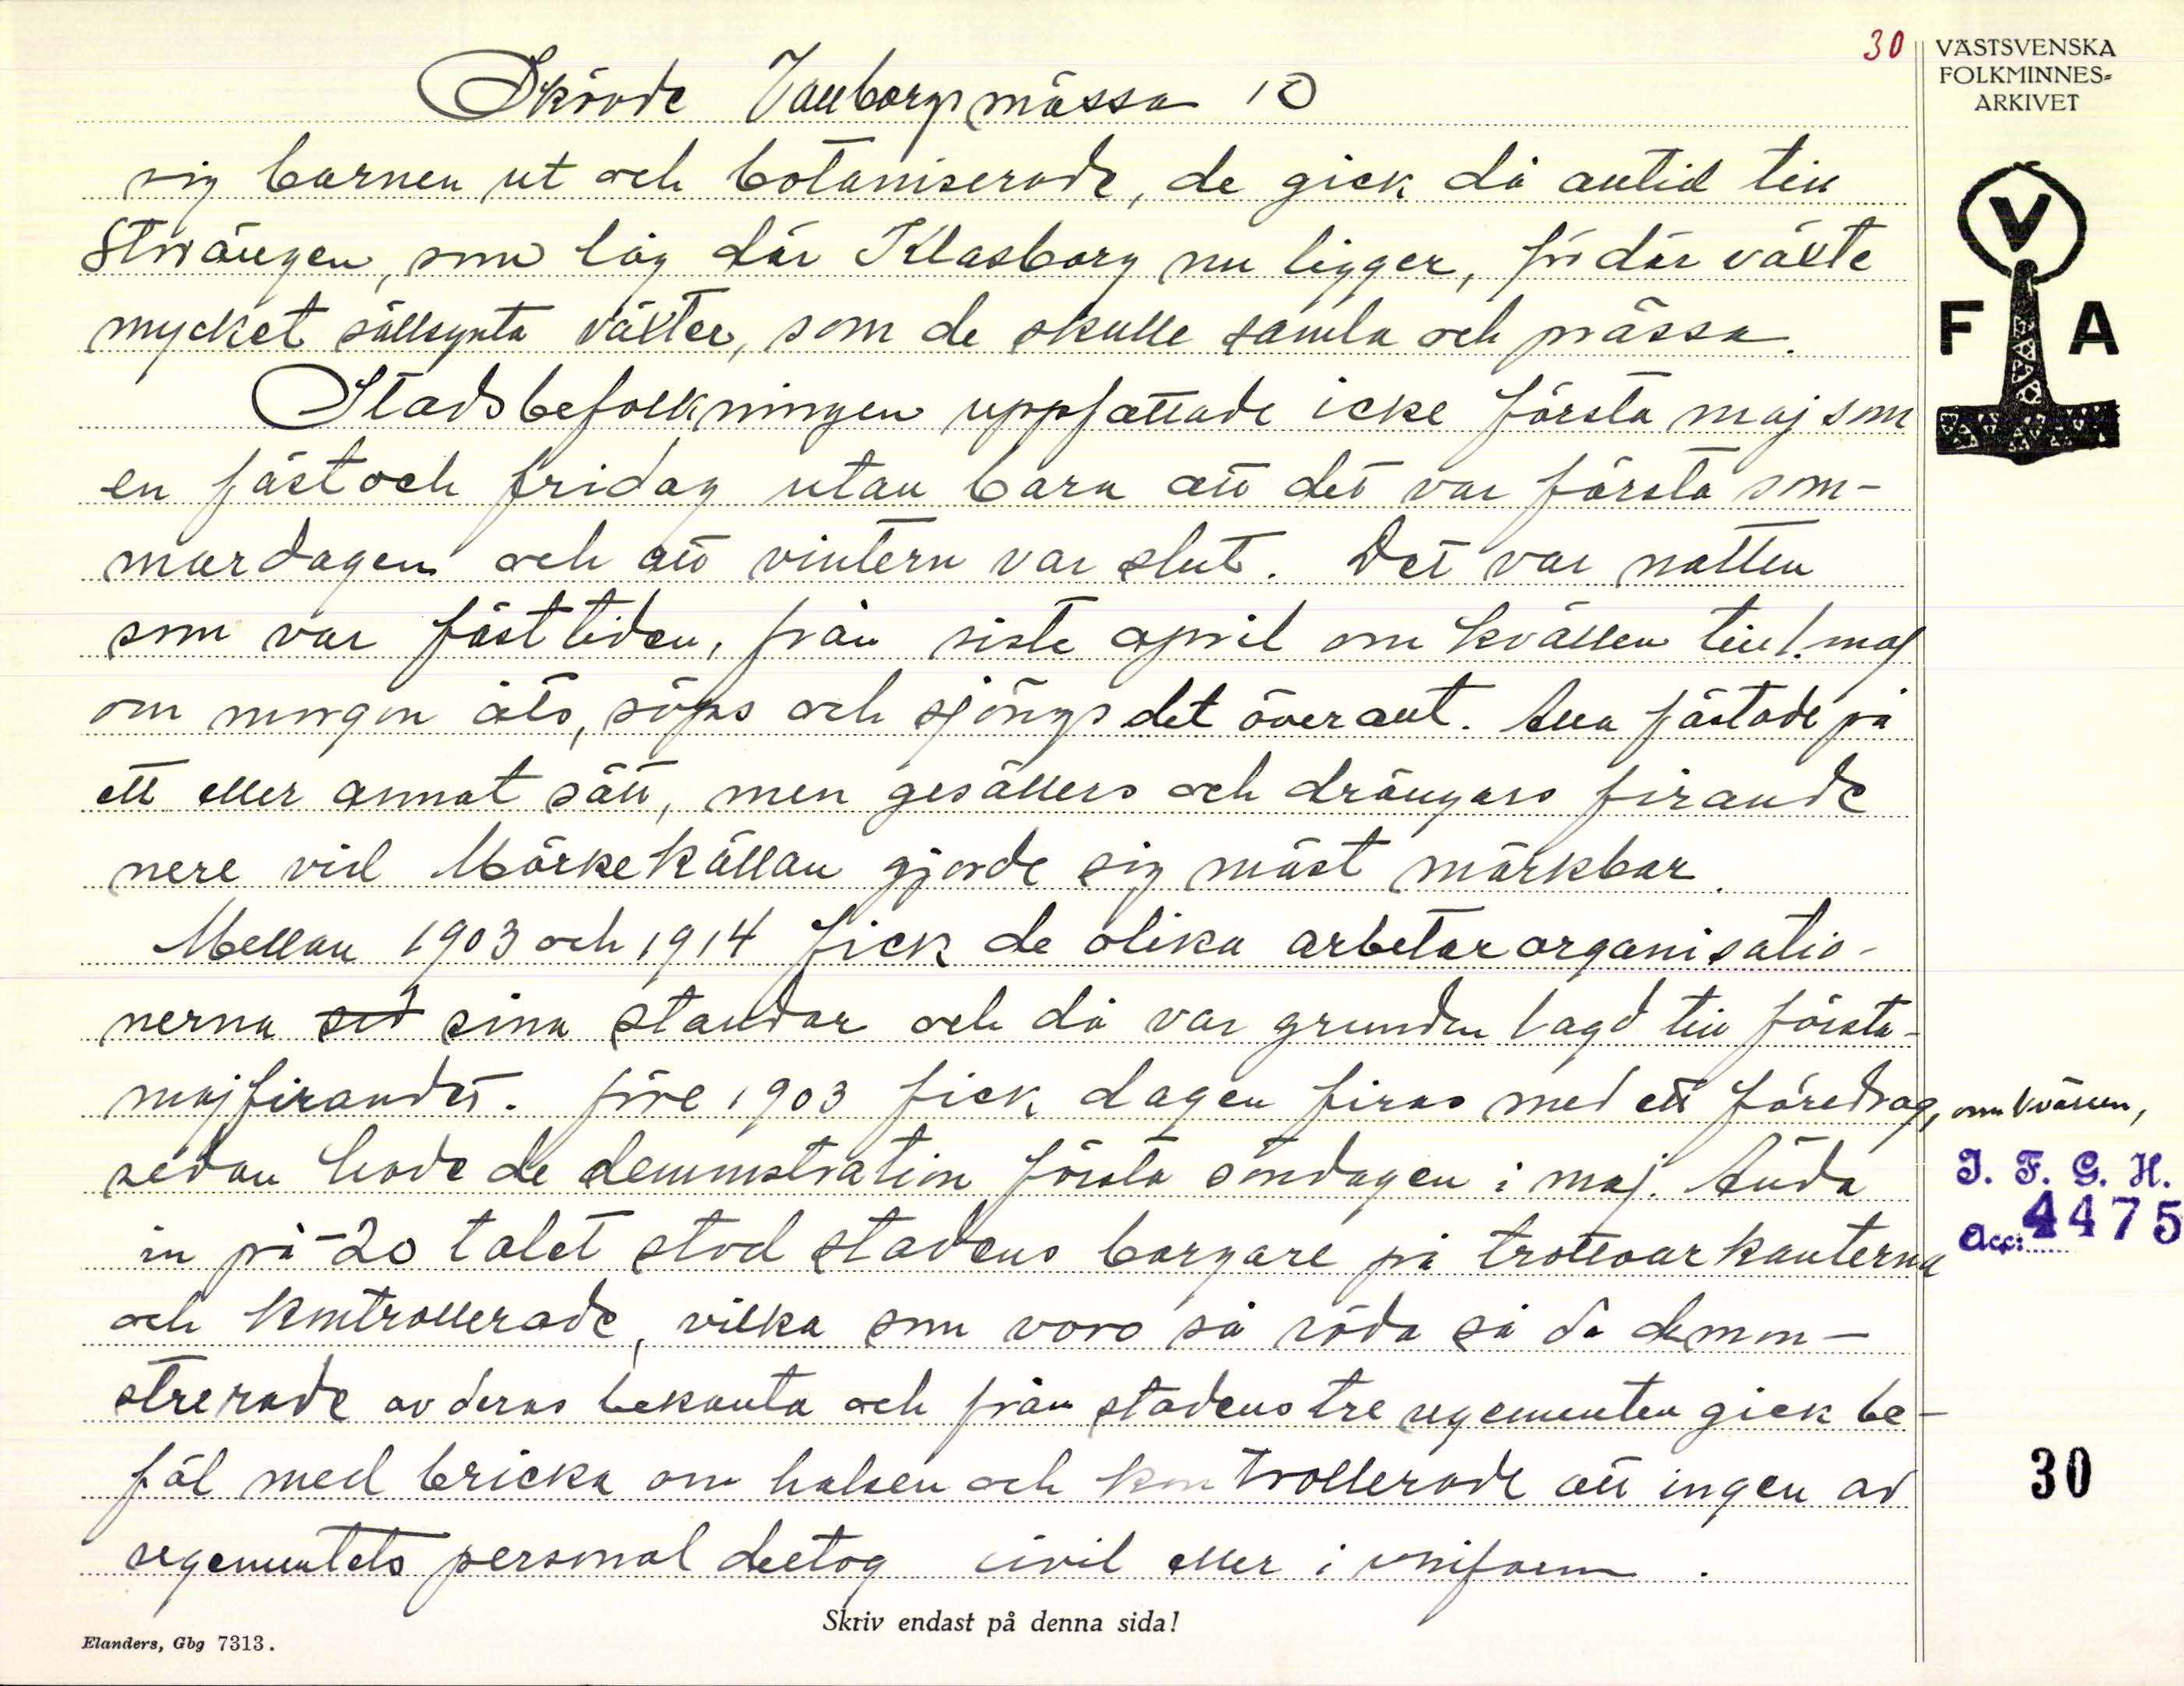 30
VÄSTSVENSKA
FOLKMINNES-
ARKIVET
Skövde Vallborgsmässa 10
sig barnen ut och botaniserade, de gick då alltid till
Strängen, som låg där Klasborg nu ligger, för där växte
mycket sällsynta växter, som de skulle samla och prässa.
Stadsbefolkningen uppfattade icke första maj som
en fäst och fridag utan bara att det var första som-
mardagen och att vintern var slut. Det var natten
som var fästtiden, från siste april om kvällen till 1. maj
om morgon åts, söps och sjöngs det överallt. Alla fästade på
ett eller annat sätt, men gesällers och drängars firande
nere vid Mörkekällan gjorde sig mäst märkbar.
Mellan 1903 och 1914 fick de olika arbetarorganisatio-
nerna sina standar och då var grunden lagd till första-
majfirandet. före 1903 fick dagen firas med ett föredrag, om kvällen,
sedan hade de demonstration första söndagen i maj. Ända
in på -20 talet stod stadens borgare på trottoarkanterna
och kontrollerade, vilka som voro så röda så de demon-
strerade av deras bekanta och från stadens tre regementen gick be-
fäl med bricka om halsen och kontrollerade att ingen av
regementets personal deltog civil eller i uniform.
V
F A
I. F. G. H.
Acc: 4475
30
Skriv endast på denna sida!
Elanders, Gbg 7313.